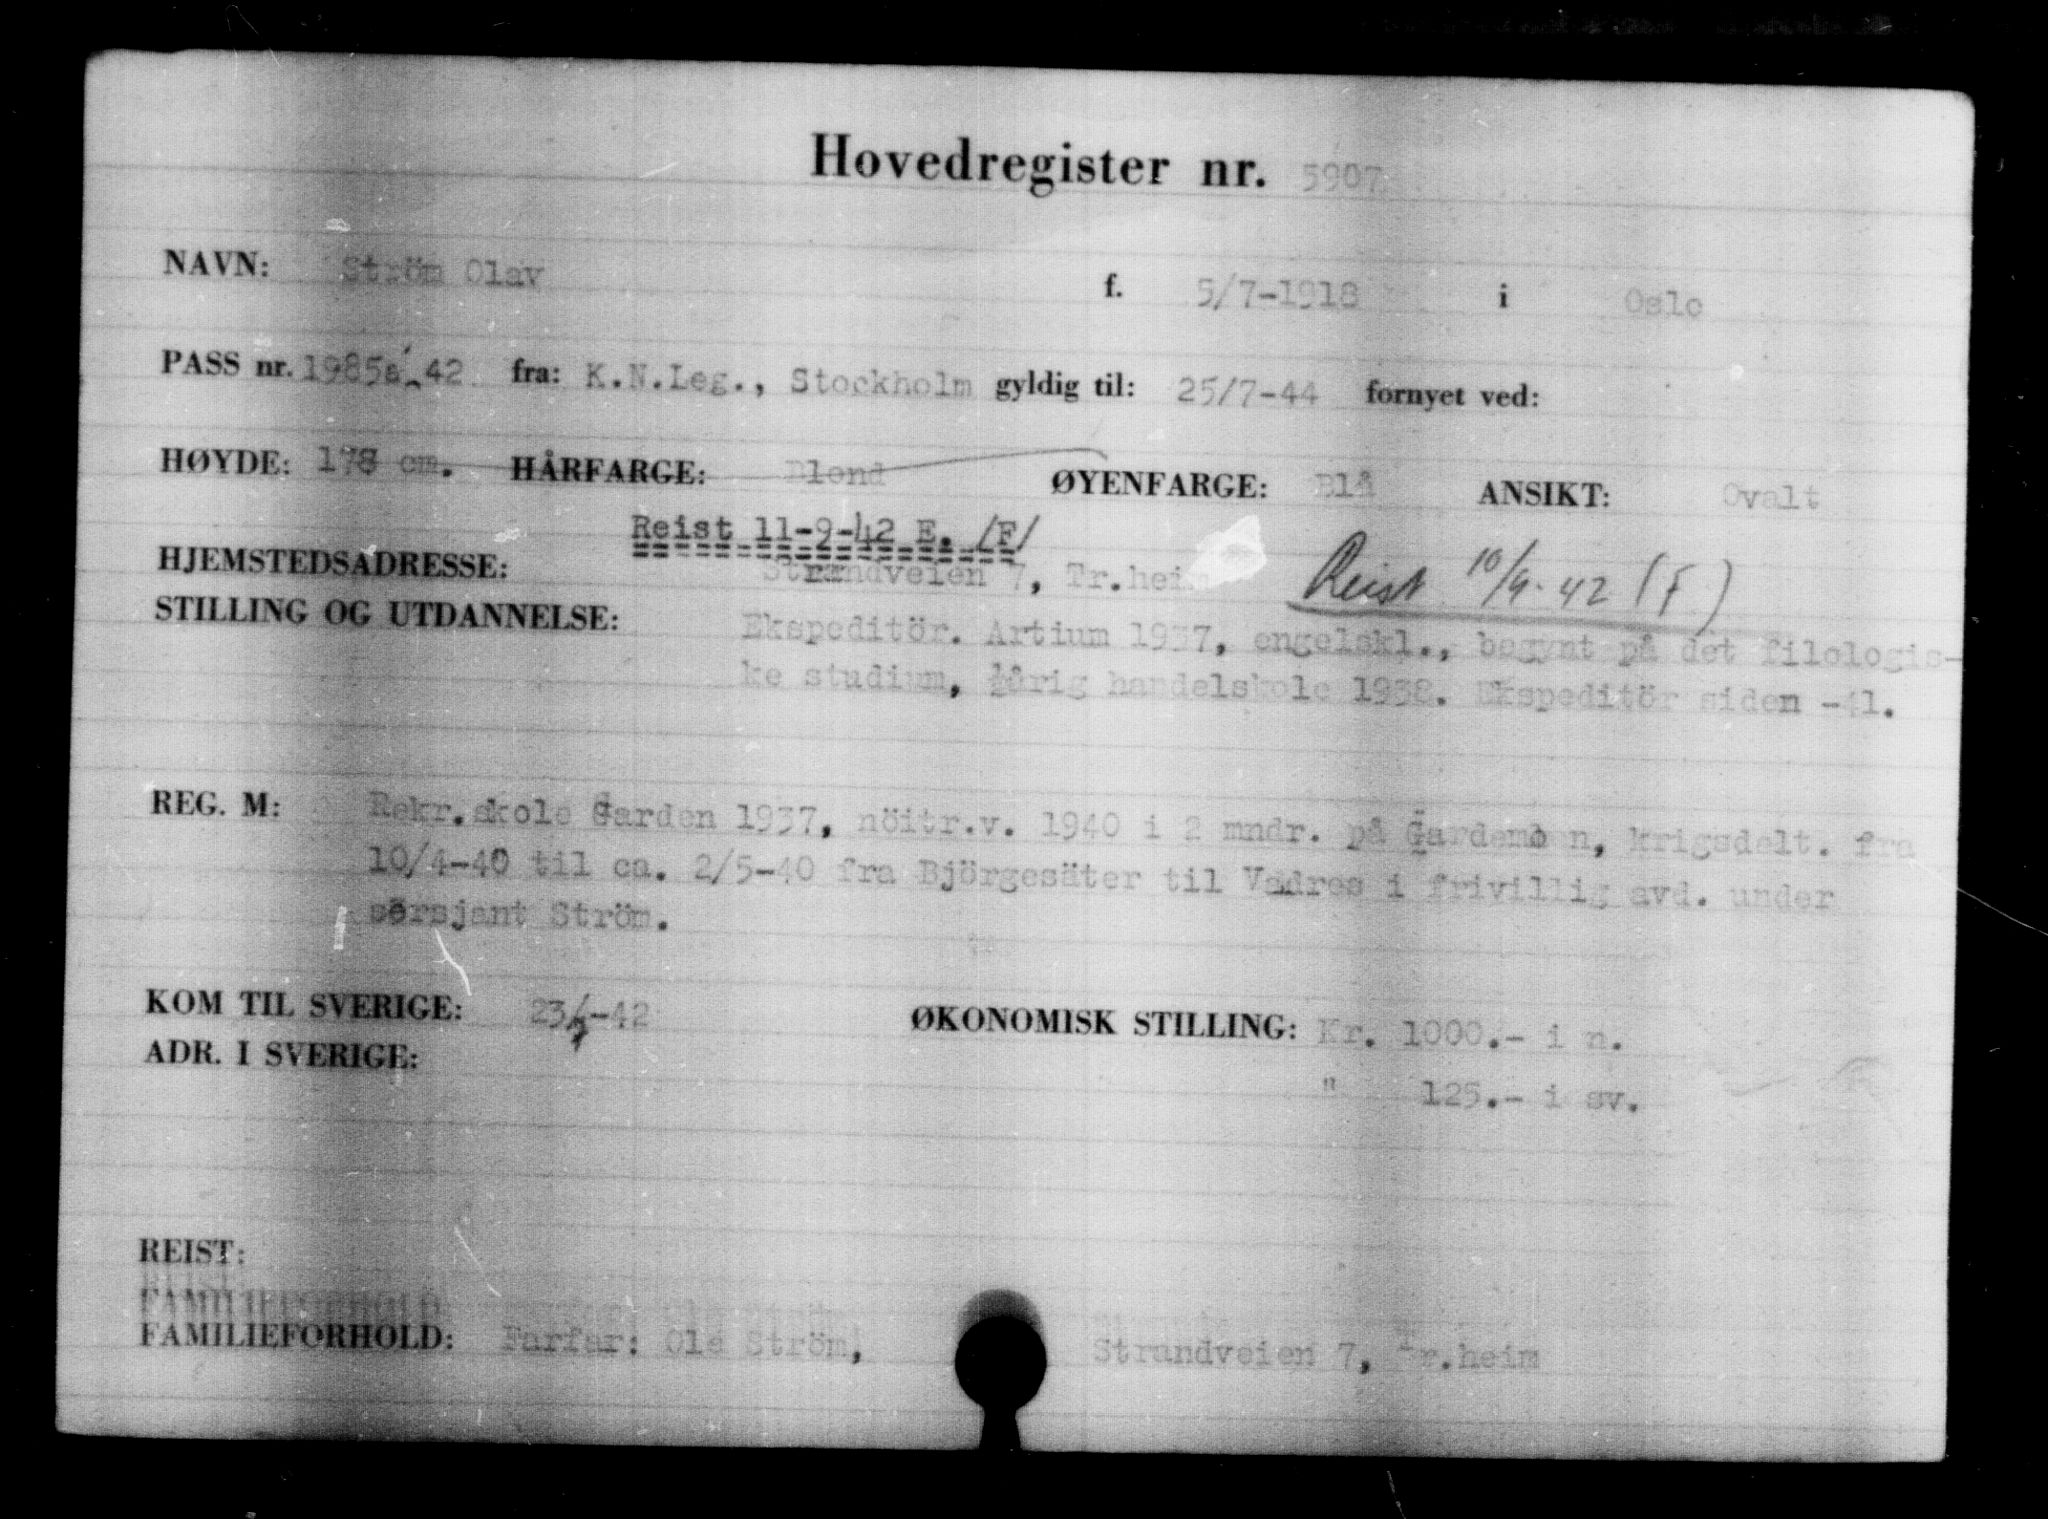 Hovedregister nr. 5907
NAVN: Ström Olav f. 5/7-1918 i Oslo
PASS nr. 1985a/42 fra: K.N.Leg., Stockholm gyldig til: 25/7-44 fornyet ved:
HØYDE: 178 cm. HÅRFARGE: Blond ØYENFARGE: Blå ANSIKT: Ovalt
Reist 11-9-42 E. /F/
HJEMSTEDSADRESSE: Strandveien 7, Tr.heim Reist 10/9-42 (F)
STILLING OG UTDANNELSE: Ekspeditör. Artium 1937, engelskl., begynt på det filologis-
ke studium, ½årig handelskole 1938. Ekspeditör siden -41.
REG. M: Rekr.skole Garden 1937, nöitr.v. 1940 i 2 mndr. på Gardemoen, krigsdelt. fra
10/4-40 til ca. 2/5-40 fra Björgesäter til Vadres i frivillig avd. under
sersjant Ström.
KOM TIL SVERIGE: 23/7-42 ØKONOMISK STILLING: Kr. 1000.- i n.
ADR. I SVERIGE: " 125.- i sv.
REIST:
REIST:
FAMILIEFORHOLD:
FAMILIEFORHOLD: Farfar: Ole Ström, Strandveien 7, Tr.heim